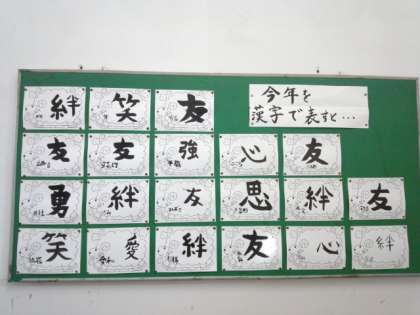 今年を
漢字で表すと…
絆 笑 友
友 友 強 心 友
勇 絆 友 思 絆 友
笑 愛 絆 友 心 絆